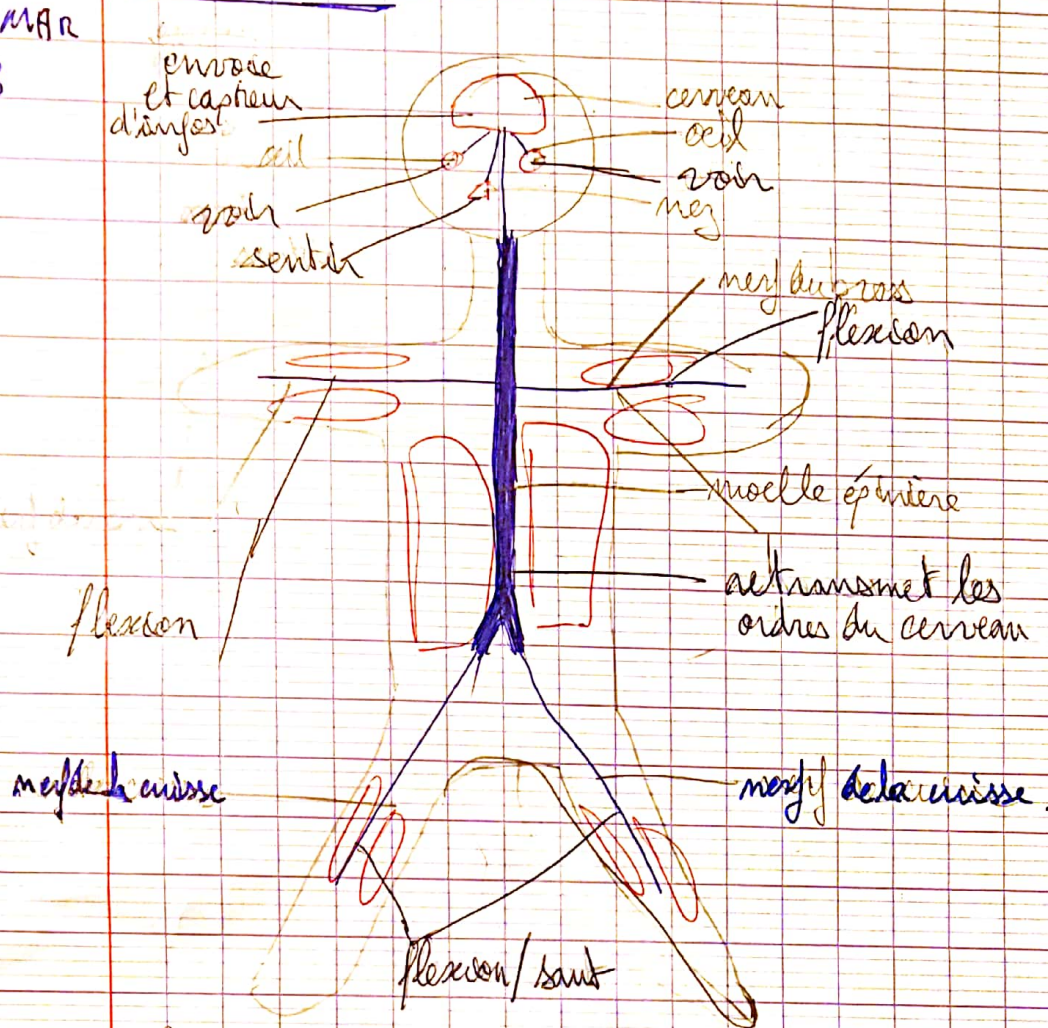 MAR
envoie
et capteur
d'infos
cerveau
œil
œil
voir
voir
nez
sentir
nerf du bras
flexion
moelle épinière
retransmet les
ordres du cerveau
flexion
nerf de la cuisse
nerf de la cuisse
flexion / saut